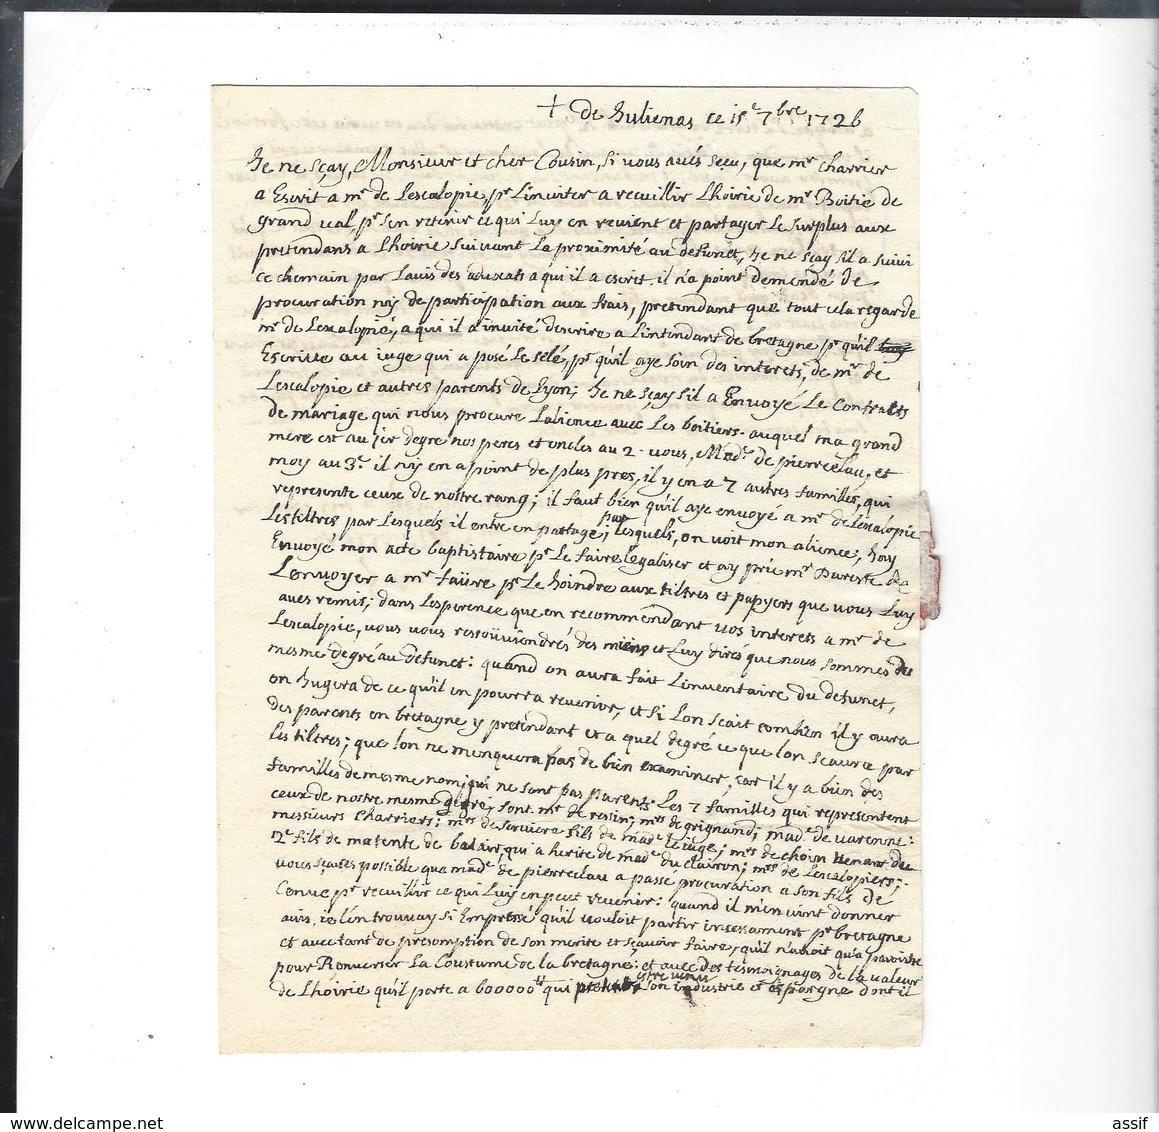 + de Julienas ce 15e 7bre 1726
Je ne sçay, Monsieur et cher Cousin, si vous avés sceu, que mr charrier
a Escrit a mr de Lescalopie, pr Linviter a recuillir Lhoirie de mr Boitie de
grand val, pr sen retenir ce qui Luy en revient et partager Le surplus aux
pretendans a Lhoirie suivant La proximité au defunct, Je ne sçay sil a suivi
ce chemain par Lavis des advocats a qui il a escrit. il na point demendé de
procuration ny de participation aux frais, pretendant que tout cela regarde
mr de Lescalopié, a qui il a invité descrire a Lintendant de bretagne pr quil
Escrive au iuge qui a posé Le selé, pr quil aye soin des interets, de mr de
Lescalopie et autres parents de Lyon; Je ne sçay sil a Envoyé Le Contracts
de mariage qui nous procure Lalience avec Les boitiers. auquel ma grand
mere est au 1er degre nos peres et oncles au 2. vous, Made. de pierreclau, et
moy au 3e. il ny en a point de plus pres, il y en a 7 autres familles, qui
represente ceux de nostre rang; il faut bien quil aye envoyé a mr de Lescalopie
Les tiltres par Lesquels il entre en partage; par Lesquels, on voit mon alience; Jay
Envoyé mon acte baptistaire pr Le faire Legaliser et ay prié mr Dareste de
Lenvoyer a mr faüre pr Le Joindre aux tiltres et papyers que vous Luy
aves remis; dans Lesperence que en recommendant vos interets a mr de
Lescalopie, vous vous ressouviendrés des miens et Luy dirés que nous sommes du
mesme degré au defunct: quand on aura fait Linventaire du defunct,
on Jugera de ce quil en pourra revenir, et si Lon scait combien il y aura
des parents en bretagne y pretendant et a quel degré ce que lon sçaura par
Les tiltres; que lon ne menquera pas de bien examiner, car il y a bien des
familles de mesme nom, qui ne sont pas parents. Les 7 familles qui representent
ceux de nostre mesme degre, sont mr de ressin; mrs de grignand; made de varenne:
messieurs Charriers; mrs de serviere fils de made Leiuge; mrs de choin venant du
2e fils de ma tente de balair, qui a herité de made du clairon; mrs de Lescalopiers;
vous sçaves possible que made de pierreclau a passé procuration a son fils de
Cenve pr recuillir ce qui Luy en peut revenir: quand il m'en vint donner
avis, ie Len trouvay si Empressé quil vouloit partir incessament pr bretagne
et avec tant de presomption de son merite et sçavoir faire, quil n'avoit qu'a paroistre
pour Renverser La Coustume de la bretagne: et avec des tesmoignages de la valeur
de Lhoirie quil porte a 600000tt qui estre venu Son industrie et espargne dont il
assif
www.delcampe.net